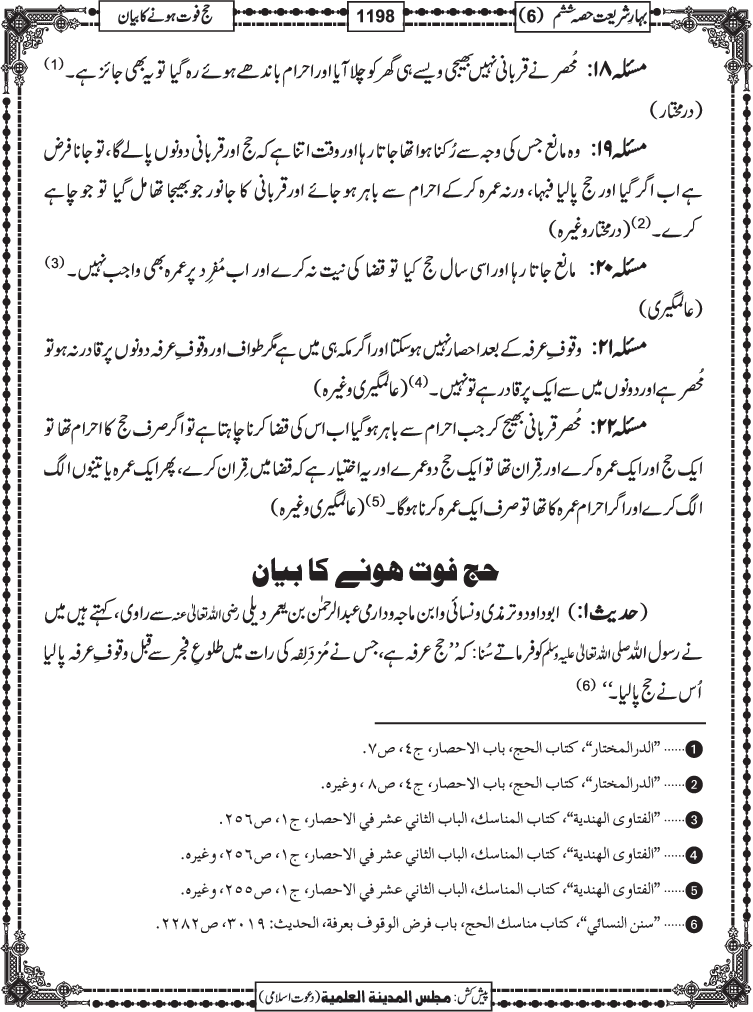 بہارِ شریعت حصہ ششم (6)
1198
حج فوت ہونے کا بیان
مسئلہ ۱۸: مُحصر نے قربانی نہیں بھیجی ویسے ہی گھر کو چلا آیا اور احرام باندھے ہوئے رہ گیا تو یہ بھی جائز ہے۔ (1)
(درمختار)
مسئلہ ۱۹: وہ مانع جس کی وجہ سے رُکنا ہوا تھا جاتا رہا اور وقت اتنا ہے کہ حج اور قربانی دونوں پالے گا، تو جانا فرض
ہے اب اگر گیا اور حج پالیا فبہا، ورنہ عمرہ کرکے احرام سے باہر ہو جائے اور قربانی کا جانور جو بھیجا تھا مل گیا تو جو چاہے
کرے۔ (2) (درمختار وغیرہ)
مسئلہ ۲۰: مانع جاتا رہا اور اسی سال حج کیا تو قضا کی نیت نہ کرے اور اب مُفرِد پر عمرہ بھی واجب نہیں۔ (3)
(عالمگیری)
مسئلہ ۲۱: وقوفِ عرفہ کے بعد احصار نہیں ہوسکتا اور اگر مکہ ہی میں ہے مگر طواف اور وقوفِ عرفہ دونوں پر قادر نہ ہو تو
مُحصر ہے اور دونوں میں سے ایک پر قادر ہے تو نہیں۔ (4) (عالمگیری وغیرہ)
مسئلہ ۲۲: مُحصر قربانی بھیج کر جب احرام سے باہر ہوگیا اب اس کی قضا کرنا چاہتا ہے تو اگر صرف حج کا احرام تھا تو
ایک حج اور ایک عمرہ کرے اور قِران تھا تو ایک حج دو عمرے اور یہ اختیار ہے کہ قضا میں قِران کرے، پھر ایک عمرہ یا تینوں الگ
الگ کرے اور اگر احرام عمرہ کا تھا تو صرف ایک عمرہ کرنا ہوگا۔ (5) (عالمگیری وغیرہ)
حج فوت ہونے کا بیان
(حدیث ۱:) ابوداود و ترمذی و نسائی و ابن ماجہ و دارمی عبدالرحمٰن بن یعمر دیلی رضی اللہ تعالیٰ عنہ سے راوی، کہتے ہیں میں
نے رسول اللہ صلی اللہ تعالیٰ علیہ وسلم کو فرماتے سُنا: کہ ’’حج عرفہ ہے، جس نے مُزدَلِفہ کی رات میں طلوعِ فجر سے قبل وقوفِ عرفہ پالیا
اُس نے حج پالیا۔‘‘ (6)
1 ...... ”الدرالمختار“، کتاب الحج، باب الاحصار، ج٤، ص٧.
2 ...... ”الدرالمختار“، کتاب الحج، باب الاحصار، ج٤، ص٨ ، وغیرہ.
3 ...... ”الفتاوی الهندیة“، کتاب المناسك، الباب الثاني عشر في الاحصار، ج١، ص٢٥٦.
4 ...... ”الفتاوی الهندیة“، کتاب المناسك، الباب الثاني عشر في الاحصار، ج١، ص٢٥٦، وغیرہ.
5 ...... ”الفتاوی الهندیة“، کتاب المناسك، الباب الثاني عشر في الاحصار، ج١، ص٢٥٥، وغیرہ.
6 ...... ”سنن النسائي“، کتاب مناسك الحج، باب فرض الوقوف بعرفة، الحدیث: ٣٠١٩، ص٢٢٨٢.
پیش کش: مجلس المدینة العلمیة (دعوت اسلامی)